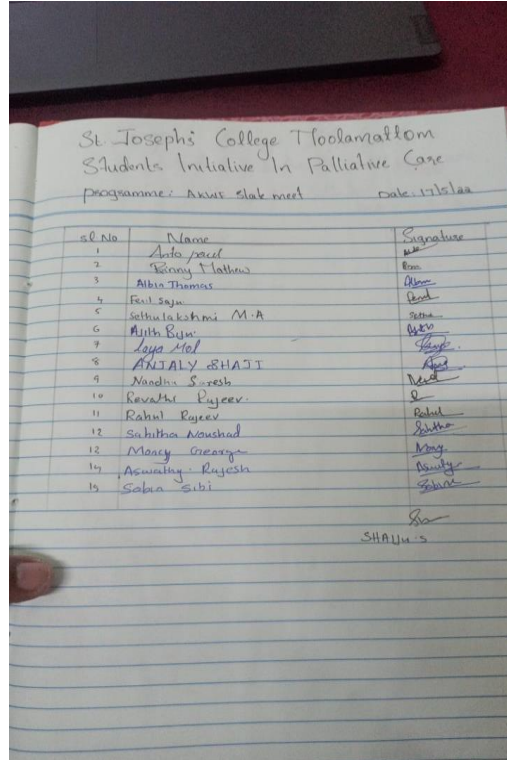 St. Joseph's College Moolamattom
Students Initiative In Palliative Care
programme: State meet Date: 17/5/22
Sl No Name Signature
1 Anto paul
2 Rinny Mathew
3 Albin Thomas Albin
4 Fenil Saju Fenil
5 Sethulakshmi M.A Sethu
6 Ajith Biju
7 Laya Mol
8 ANJALY SHAJI
9 Nandhu Suresh Nand
10 Revathi Rajeev. R
11 Rahul Rajeev Rahul
12 Sahitha Noushad Sahitha
12 Moncy George Moncy
14 Aswathy Rajesh Aswathy
15 Sabin Sibi Sabin
SHAIJU.S